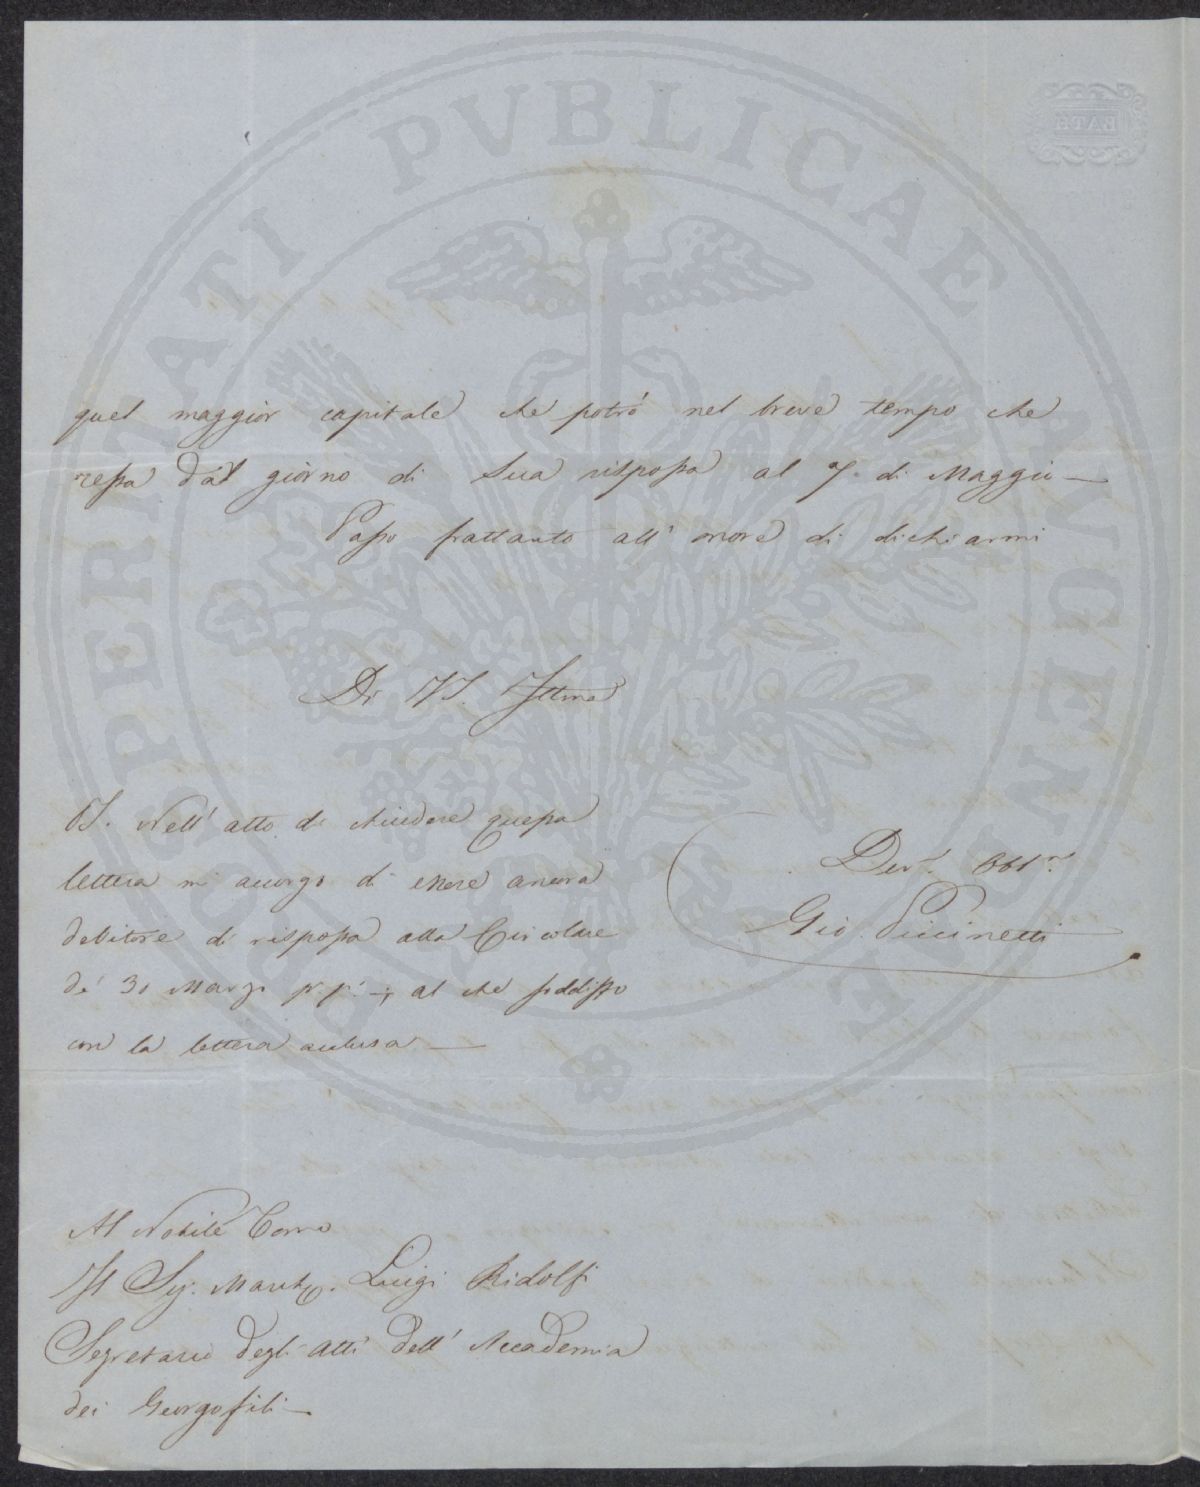 quel maggior capitale che potrò nel breve tempo che
resta dal giorno di Sua risposta al 7. di Maggio —
Passo frattanto all' onore di dichiarmi
Di VS. Illma
PS. Nell' atto di chiudere questa
lettera mi accorgo di essere ancora
debitore di risposta alla Circolare
de' 30 Marzo pr. p.° -; al che soddisfo
con la lettera acclusa —
Dev.° Obb.mo
Gio. Piccinetti
Al Nobile Uomo
Il Sig. March. Luigi Ridolfi
Segretario degli Atti dell' Accademia
dei Georgofili —
PROSPERITATI PVBLICAE AVGENDAE
BATH